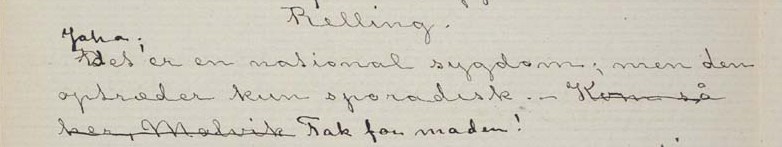 Relling.
Jaha;
Det er en national sygdom; men den
optræder kun sporadisk. – Kom så
her, Molvik Tak for maden!